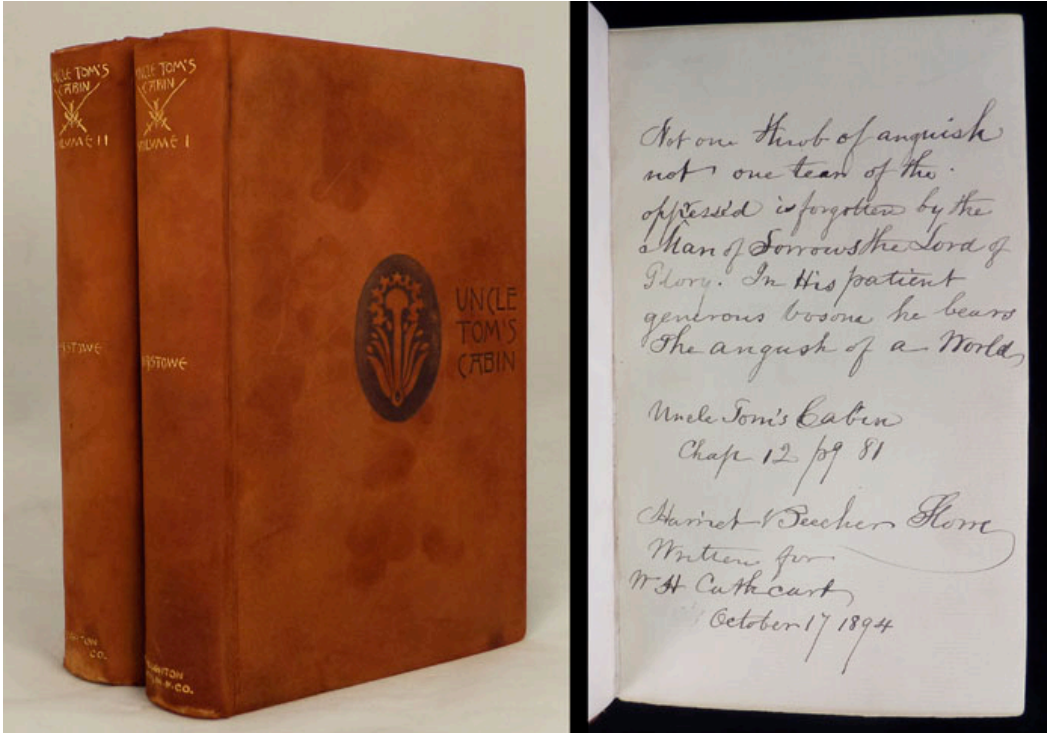 UNCLE TOM'S
CABIN
VOLUME II
STOWE
CO.
UNCLE TOM'S
CABIN
VOLUME I
STOWE
CO.
UNCLE
TOM'S
CABIN
Not one throb of anguish
not one tear of the
oppressd is forgotten by the
Man of Sorrows the Lord of
Glory. In His patient
generous bosom he bears
The angush of a World
Uncle Tom's Cabin
Chap 12 pg 81
Harriet Beecher Stowe
Written for
W H Cathcart
October 17 1894